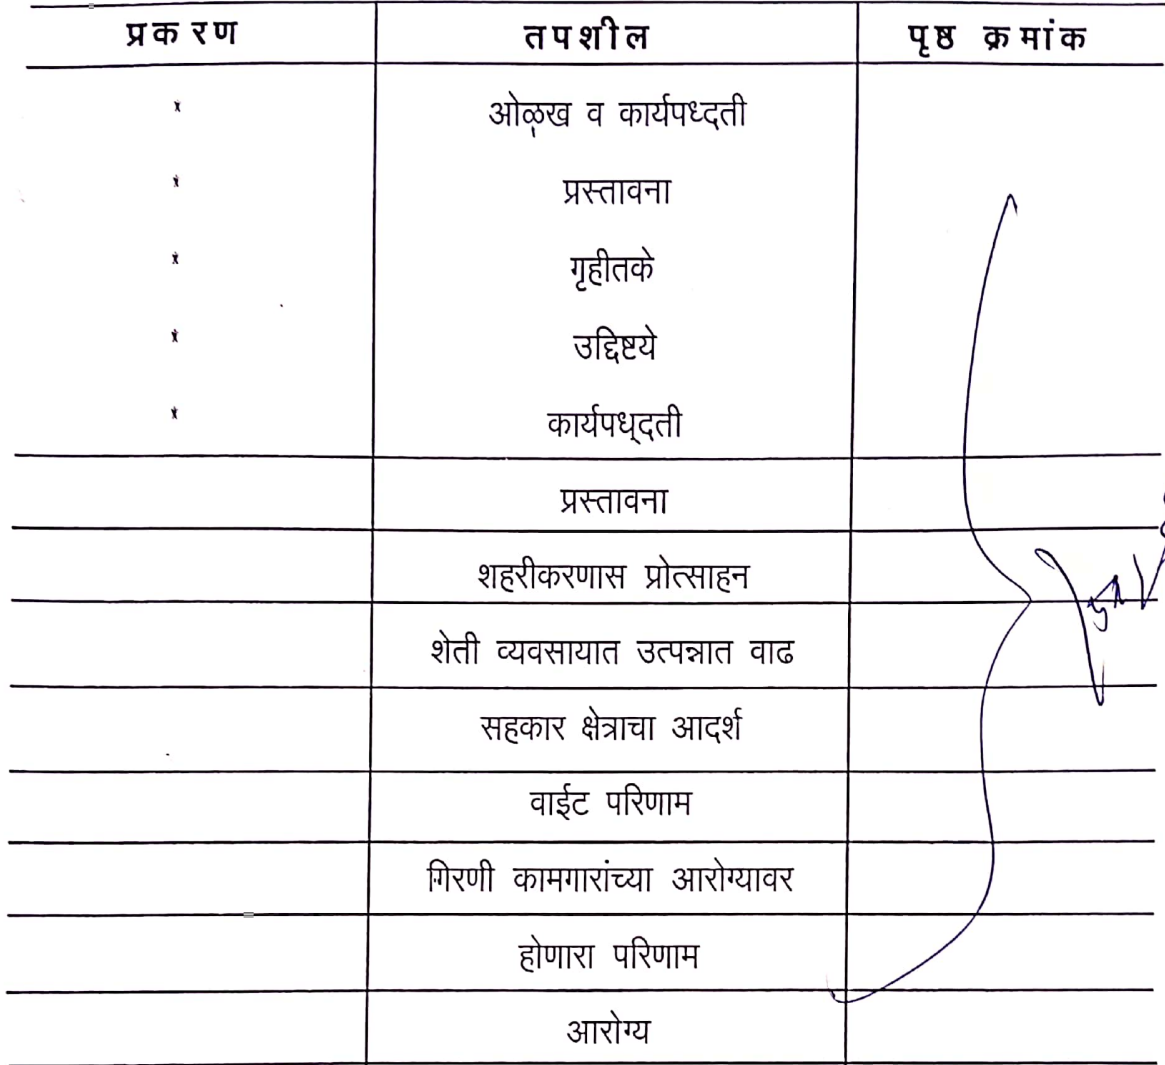 प्रकरण तपशील पृष्ठ क्रमांक
* ओळख व कार्यपध्दती
* प्रस्तावना
* गृहीतके
* उद्दिष्टये
* कार्यपध्दती
प्रस्तावना
शहरीकरणास प्रोत्साहन
शेती व्यवसायात उत्पन्नात वाढ
सहकार क्षेत्राचा आदर्श
वाईट परिणाम
गिरणी कामगारांच्या आरोग्यावर
होणारा परिणाम
आरोग्य